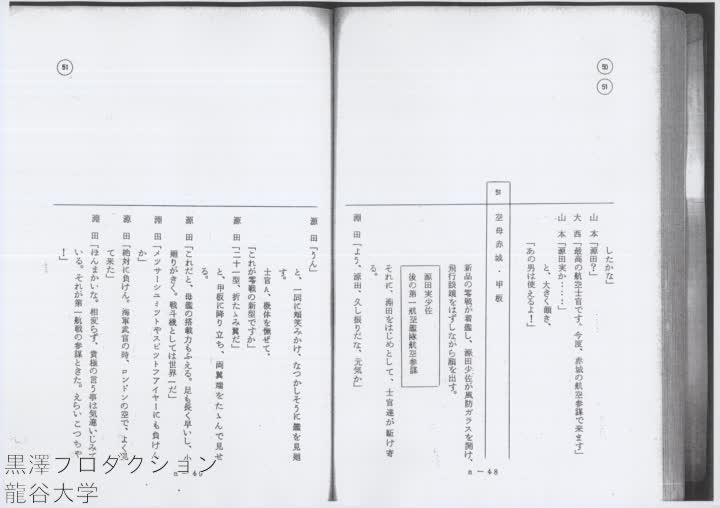 50
51
したかな」
山本「源田?」
大西「最高の航空士官です。今度、赤城の航空参謀で来ます」
山本「源田実か……」
と、大きく頷き、
「あの男は使えるよ!」
51 空母赤城・甲板
新品の零戦が着艦し、源田少佐が風防ガラスを開け、
飛行眼鏡をはずしながら顔を出す。
源田実少佐
後の第一航空艦隊航空参謀
それに、淵田をはじめとして、士官達が駈け寄
る。
淵田「よう、源田、久し振りだな、元気か」
n-48
51
源田「うん」
と、一同に頬笑みかけ、なつかしそうに艦を見廻
す。
士官A、機体を撫ぜて、
「これが零戦の新型ですか」
源田「二十一型、折たゝみ翼だ」
と、甲板に降り立ち、両翼端をたゝんで見せ
る。
源田「これだと、母艦の搭載力もふえる。足も長く早いし、小
廻りがきく。戦斗機としては世界一だ」
淵田「メッサーシュミットやスピットファイヤーにも負けん
か」
源田「絶対に負けん。海軍武官の時、ロンドンの空で、よく見
て来た」
淵田「ほんまかいな。相変らず、貴様の言う事は気違いじみて
いる。それが第一航戦の参謀ときた。えらいこっちゃ
!」
n-49
黒澤プロダクション
龍谷大学